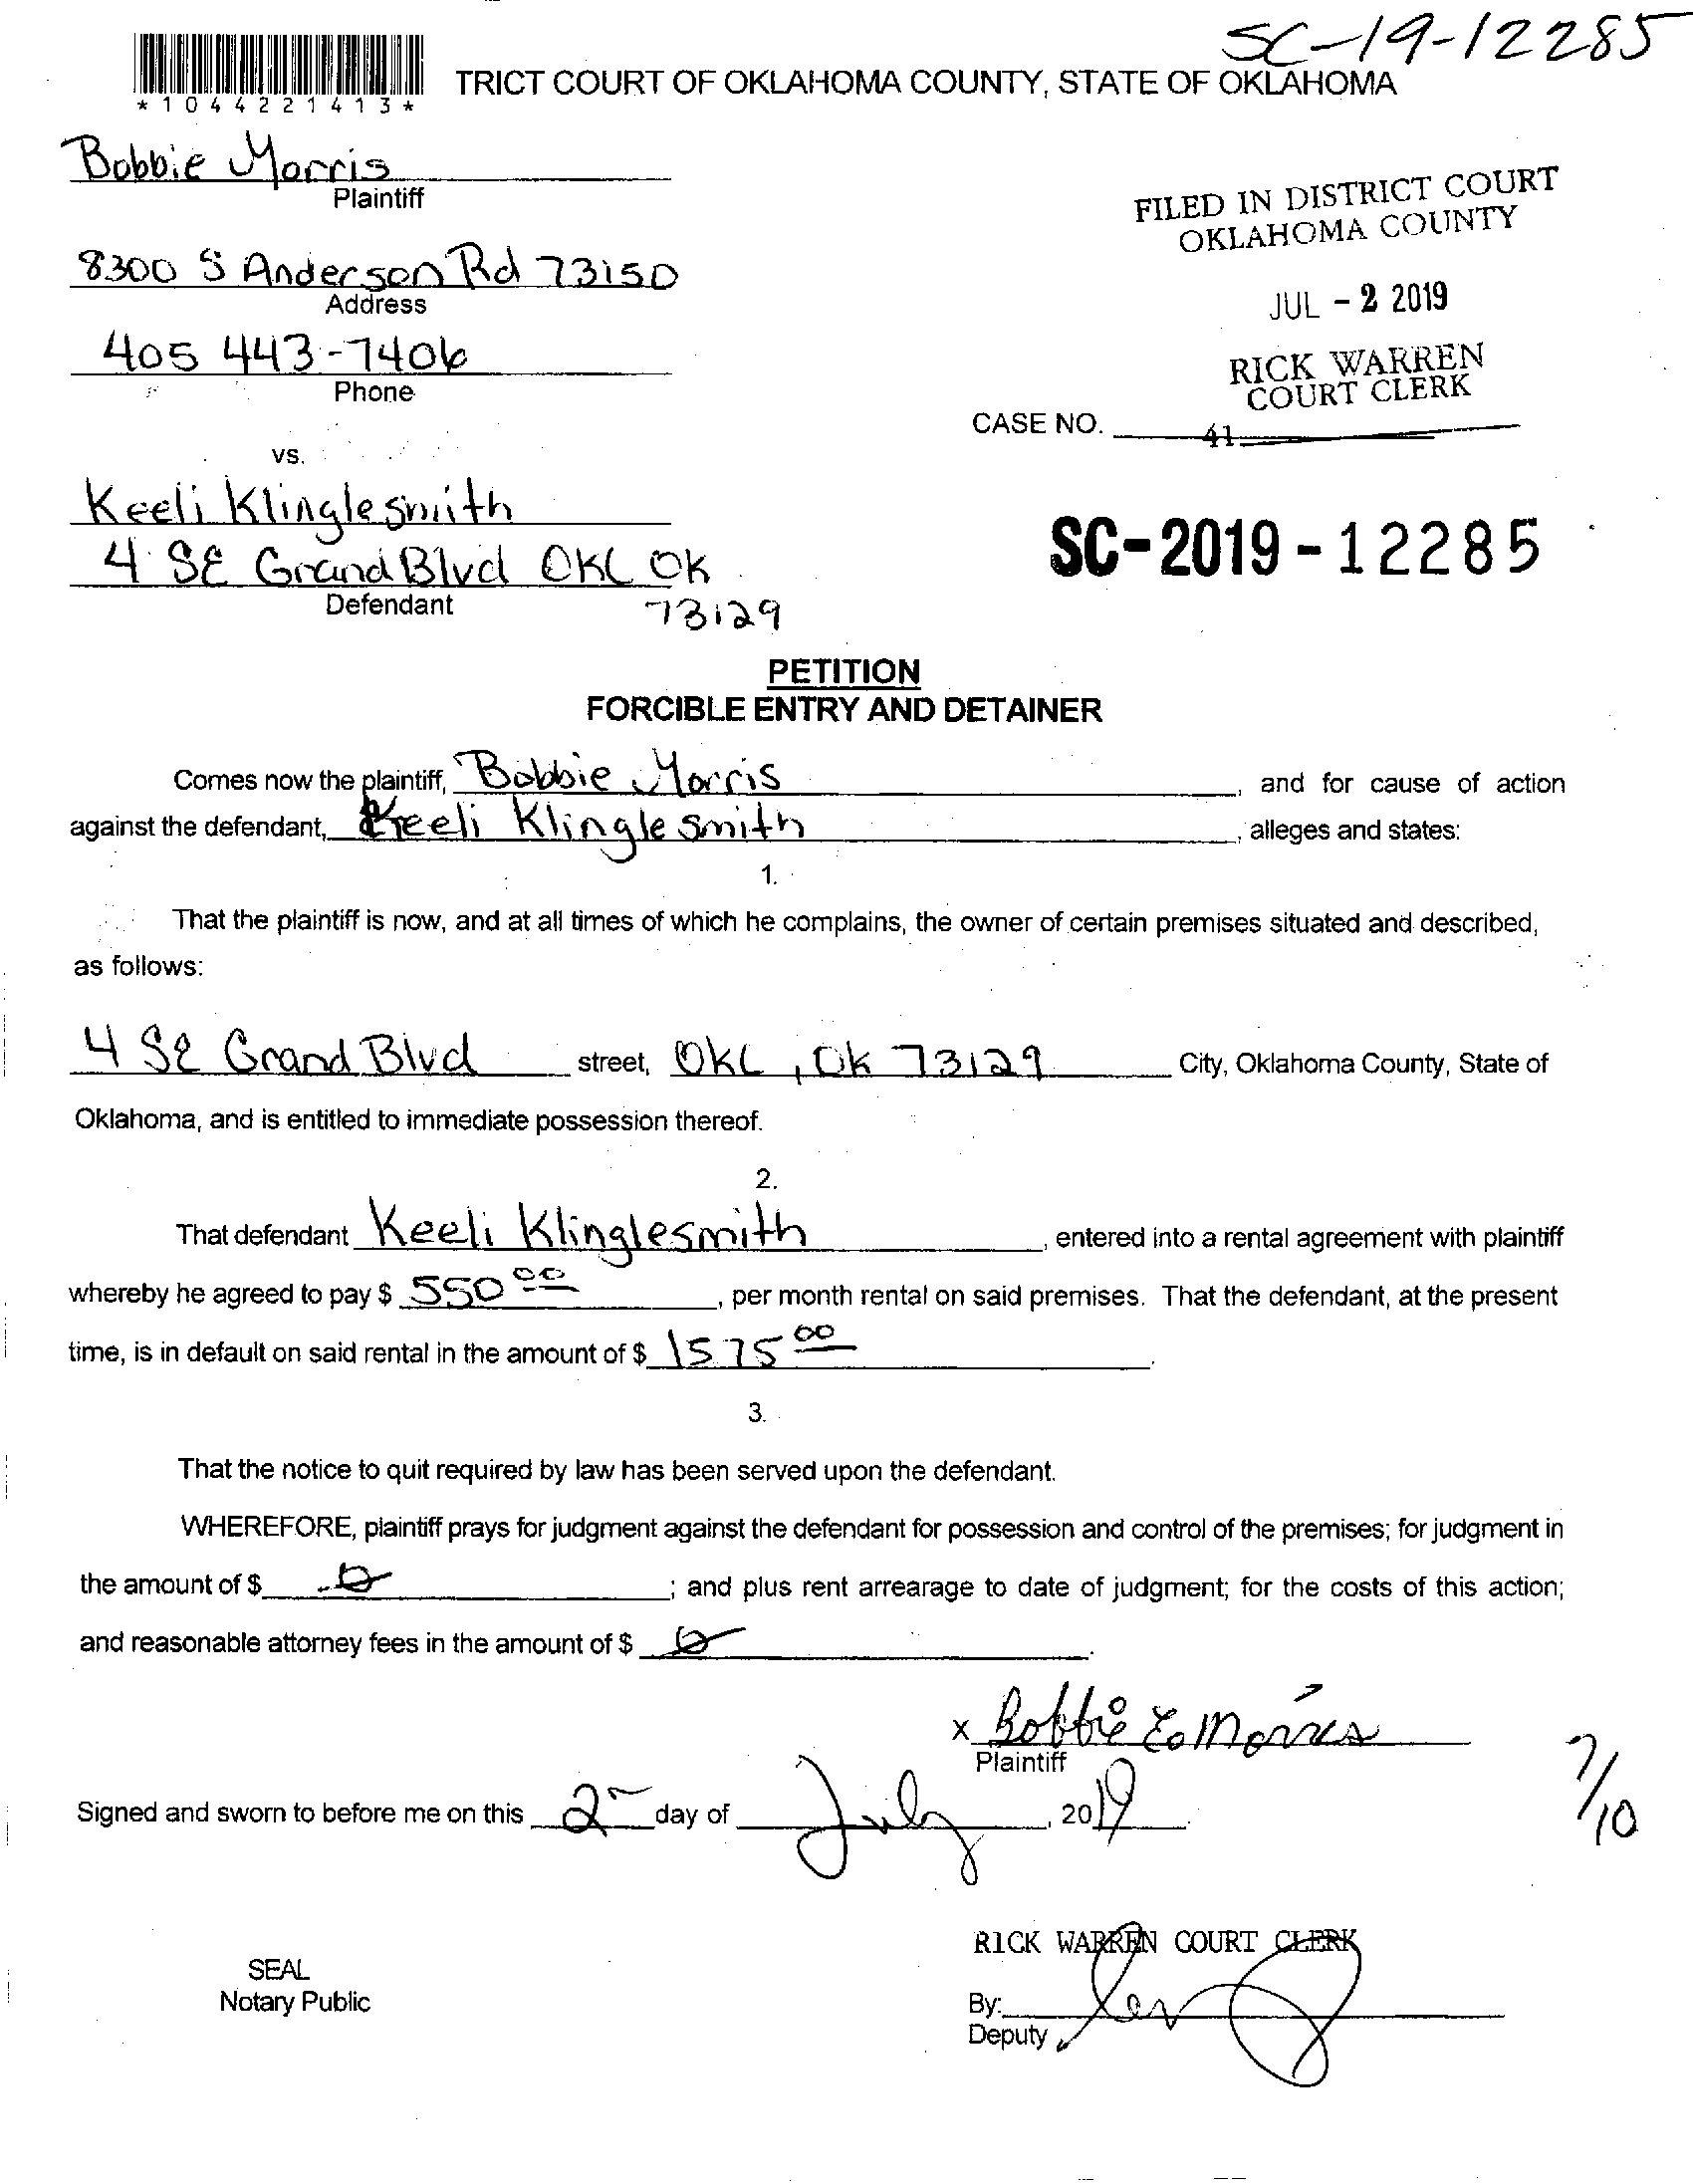 SC-19-12285
TRICT COURT OF OKLAHOMA COUNTY, STATE OF OKLAHOMA
*1044221413*
Bobbie Morris
Plaintiff
FILED IN DISTRICT COURT
OKLAHOMA COUNTY
8300 S Anderson Rd 73150
Address
JUL - 2 2019
405 443-7406
Phone
RICK WARREN
COURT CLERK
CASE NO.
41
vs.
Keeli Klinglesmith
SC-2019-12285
4 SE Grand Blvd OKC OK
Defendant
73129
PETITION
FORCIBLE ENTRY AND DETAINER
Comes now the plaintiff, Bobbie Morris, and for cause of action
against the defendant, Keeli Klinglesmith, alleges and states:
1.
That the plaintiff is now, and at all times of which he complains, the owner of certain premises situated and described,
as follows:
4 SE Grand Blvd street, OKC, OK 73129 City, Oklahoma County, State of
Oklahoma, and is entitled to immediate possession thereof.
2.
That defendant Keeli Klinglesmith, entered into a rental agreement with plaintiff
whereby he agreed to pay $ 550 00, per month rental on said premises. That the defendant, at the present
time, is in default on said rental in the amount of $ 1575 00.
3.
That the notice to quit required by law has been served upon the defendant.
WHEREFORE, plaintiff prays for judgment against the defendant for possession and control of the premises; for judgment in
the amount of $ 0; and plus rent arrearage to date of judgment; for the costs of this action;
and reasonable attorney fees in the amount of $ 0.
x Bobbie Morris
Plaintiff
7/10
Signed and sworn to before me on this 2 day of July, 2019.
RICK WARREN COURT CLERK
SEAL
Notary Public
By:
Deputy